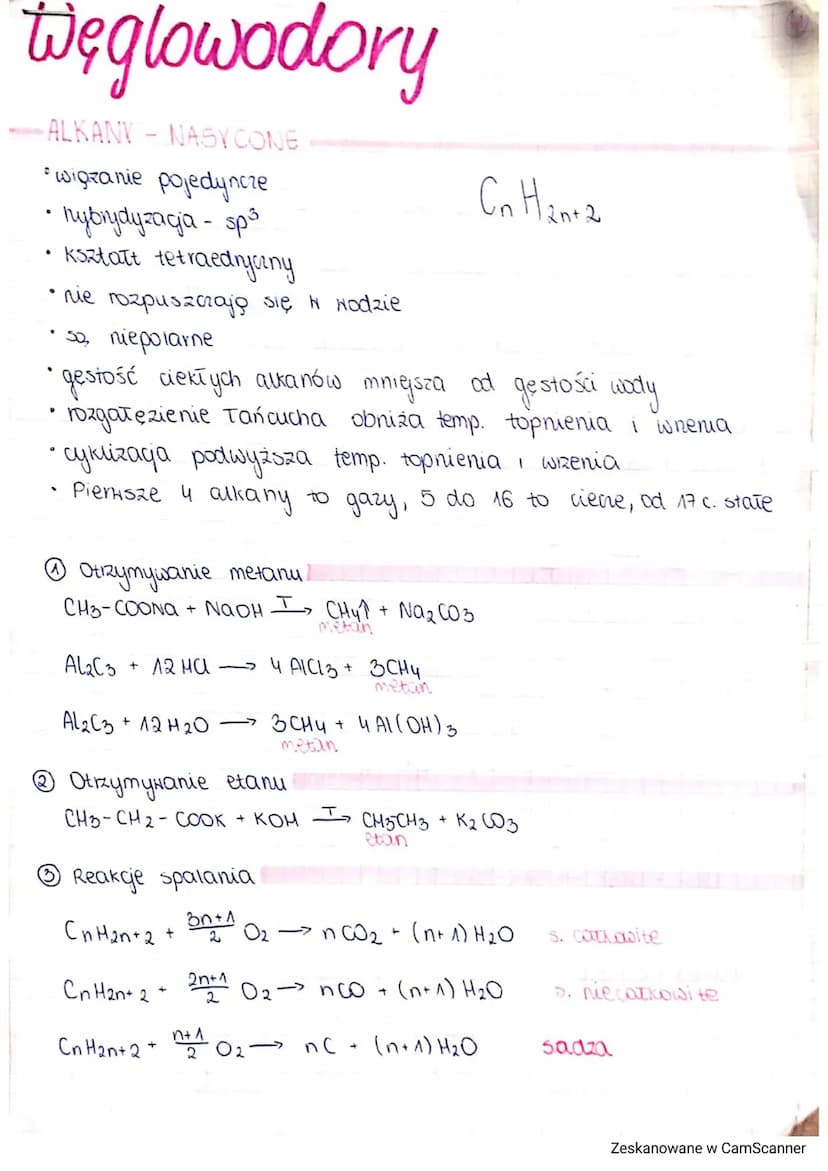 Węglowodory
ALKANY - NASYCONE
• wiązanie pojedyncze
CnH2n+2
• hybrydyzacja - sp³
• kształt tetraedryczny
• nie rozpuszczają się w wodzie
• są niepolarne
• gęstość ciekłych alkanów mniejsza od gęstości wody
• rozgałęzienie łańcucha obniża temp. topnienia i wrzenia
• cyklizacja podwyższa temp. topnienia i wrzenia
• Pierwsze 4 alkany to gazy, 5 do 16 to ciecze, od 17 c. stałe
① Otrzymywanie metanu
CH3-COONa + NaOH T→ CH4↑ + Na2CO3
metan
Al2C3 + 12HCl → 4AlCl3 + 3CH4
metan
Al2C3 + 12H2O → 3CH4 + 4Al(OH)3
metan
② Otrzymywanie etanu
CH3-CH2-COOK + KOH T→ CH3CH3 + K2CO3
etan
③ Reakcje spalania
CnH2n+2 + 3n+1/2 O2 → nCO2 + (n+1)H2O s. całkowite
CnH2n+2 + 2n+1/2 O2 → nCO + (n+1)H2O s. niecałkowite
CnH2n+2 + n+1/2 O2 → nC + (n+1)H2O sadza
Zeskanowane w CamScanner